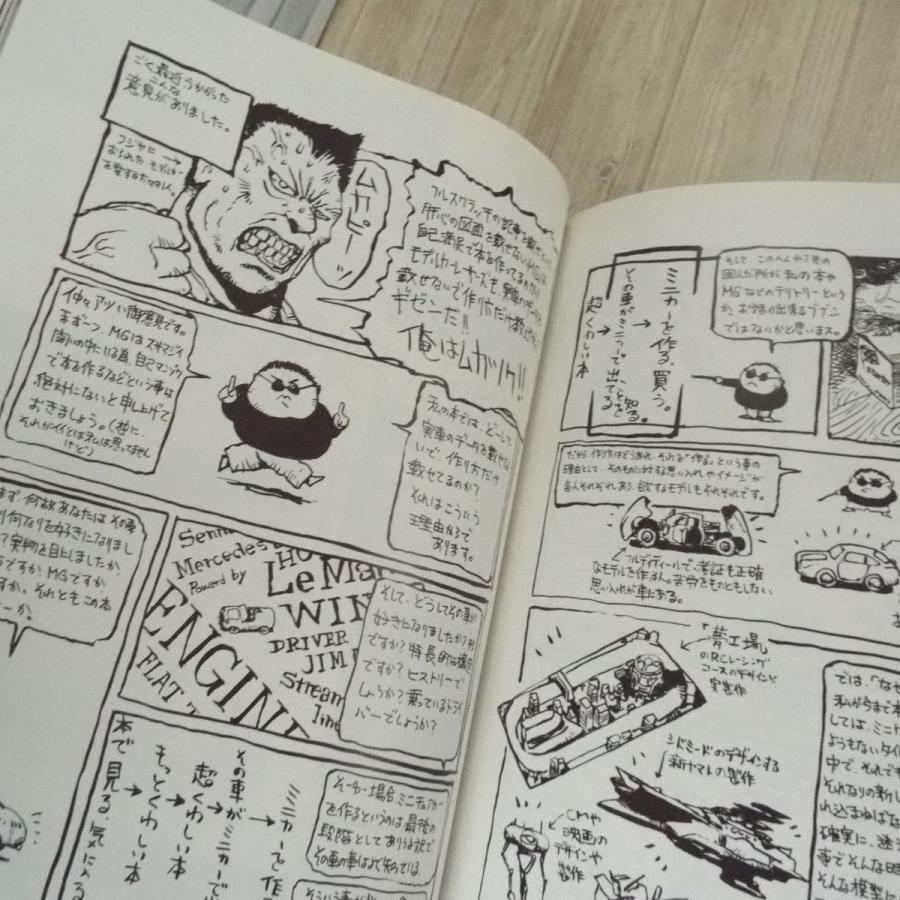 ごく最近うかがった
こんな
意見がありました。
フジヤに→
おられた モデルカー
を愛する方々の1人。
ムカピー
フルスクラッチの記事を載せ
肝心の図面を載せない
自己満足で本を作ってる
モデルカーチーズも、実車の
載せないで作り方だけ教
ギゼンだ!!
俺はムカツク!!
仲々アツい御意見です。
まず一つ、MGはスサマジイ
闘いの中にいる為、自己マンゾク
で本を作るなどという事は
絶対にないと申し上げて
おきましょう。(逆に、
それがイイとは私は思ってません
けど)
私の本では、どーして
実車のデータを載せな
いで、作り方だけ
載せてるのか?
それはこういう
理由からで
あります。
まず、何故あなたは その車
なりを好きになりまし
実物を目にしましたか、
ですか、MGですか
すか、それとも この本
か。
Mercedes
Powered by
Le Ma
WIN
DRIVER
JIM
ENGIN
FLAT
Stream
line
そして、どうしてその車が
好きになりましたか?
ですか?特長的な構造
ですか?ヒストリーで
しょうか?乗っているドライ
バーでしょうか?
ミニカーを作
その車がミニカーで出
超くわしい本
もっとくわしい本
本で見る、気に入る
そーゆー場合、ミニチュアカー
を作るというのは最後の
段階としてありうる訳で
その車の事はよく知っている
そして、このへんから先の
囲んだ所が 私の本や
MGなどのテリトリーという
か、お手伝い出来るブブン
ではないかと思います。
ミニカーを作る、買う。
その車がミニカーで出てる
ことを知る。
超くわしい本
だから 作り方はどうあれ、それを「作る」という事の
理由として、そのものに対する思い入れやイメージが
各人それぞれあり、欲するモデルもそれぞれです。
フルディティールで、考証も正確
なモデルを作る人。苦労をものともしない
思い入れが車にある。
「夢工場」
のRCレーシング
コースのデザインと
実製作
シドミードのデザインする
新ヤマトの製作
CMや
映画の
デザインや
製作
では、「なぜ
私が今まで本
しては、ミニカ
ようもないタイ
中で、それでも
それなりの新し
れ込まねばな
確実に、迷う
事でそんな時
そんな模型に